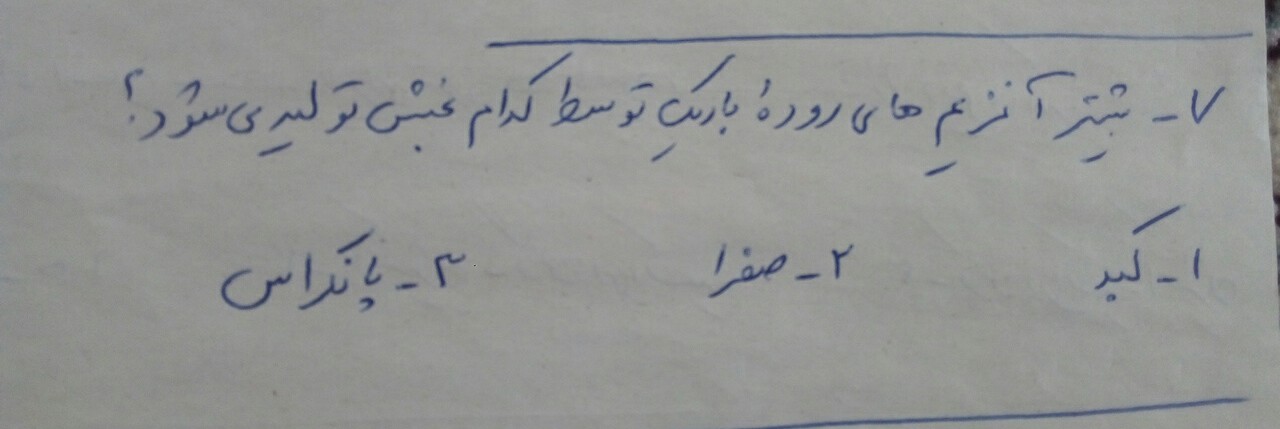 ۷- بیشتر آنزیم های رودهٔ باریک توسط کدام بخش تولید می شود؟
۱- کبد ۲- صفرا ۳- پانکراس